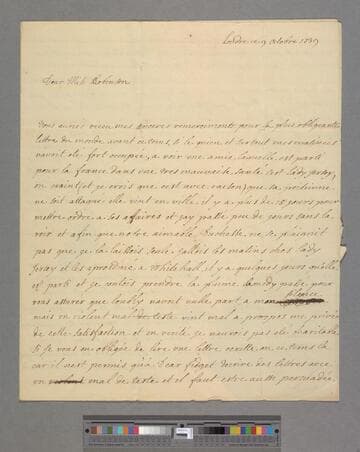 Londre ce 9 Octobre 1739
Pour Mlle Robinson
Vous auriés receu mes sinceres remerciments pour la plus obligeante
lettre du monde avant ce tems, si le peu et surtout mes matinées
n'avoit été fort occupée, a voir une amie, laquelle est parti
pour la france dans une tres mauvaise santé c'est Lady Jersey,
on craint (et je crois que c'est avec raison) que sa poitrine
ne soit attaqué elle vint en ville il y a plus de 15 jours pour
mettre ordre a ses affaires et j'ay passé peu de jours sans la
voir et afin que notre aimable Duchesse ne se plaignit
pas que je la laissois seule j'allois les matins chez Lady
Jersey et les apresdiné a Whitehall, il y a quelques jours qu'elle
est parti et je voulois prendre la plume lundy passé pour
vous assurer que l'oubly n'avoit nulle part a mon silence
mais un violent mal de teste vint mal a propos me privée
de cette satisfaction et en verité je n'aurois pas été charitable
si je vous eu obligée de lire une lettre ecritte en ce tems la
car il n'est permis qu'a Dear fidget d'ecrire des lettres avec
un mal de teste et il faut estre aussi persuadée